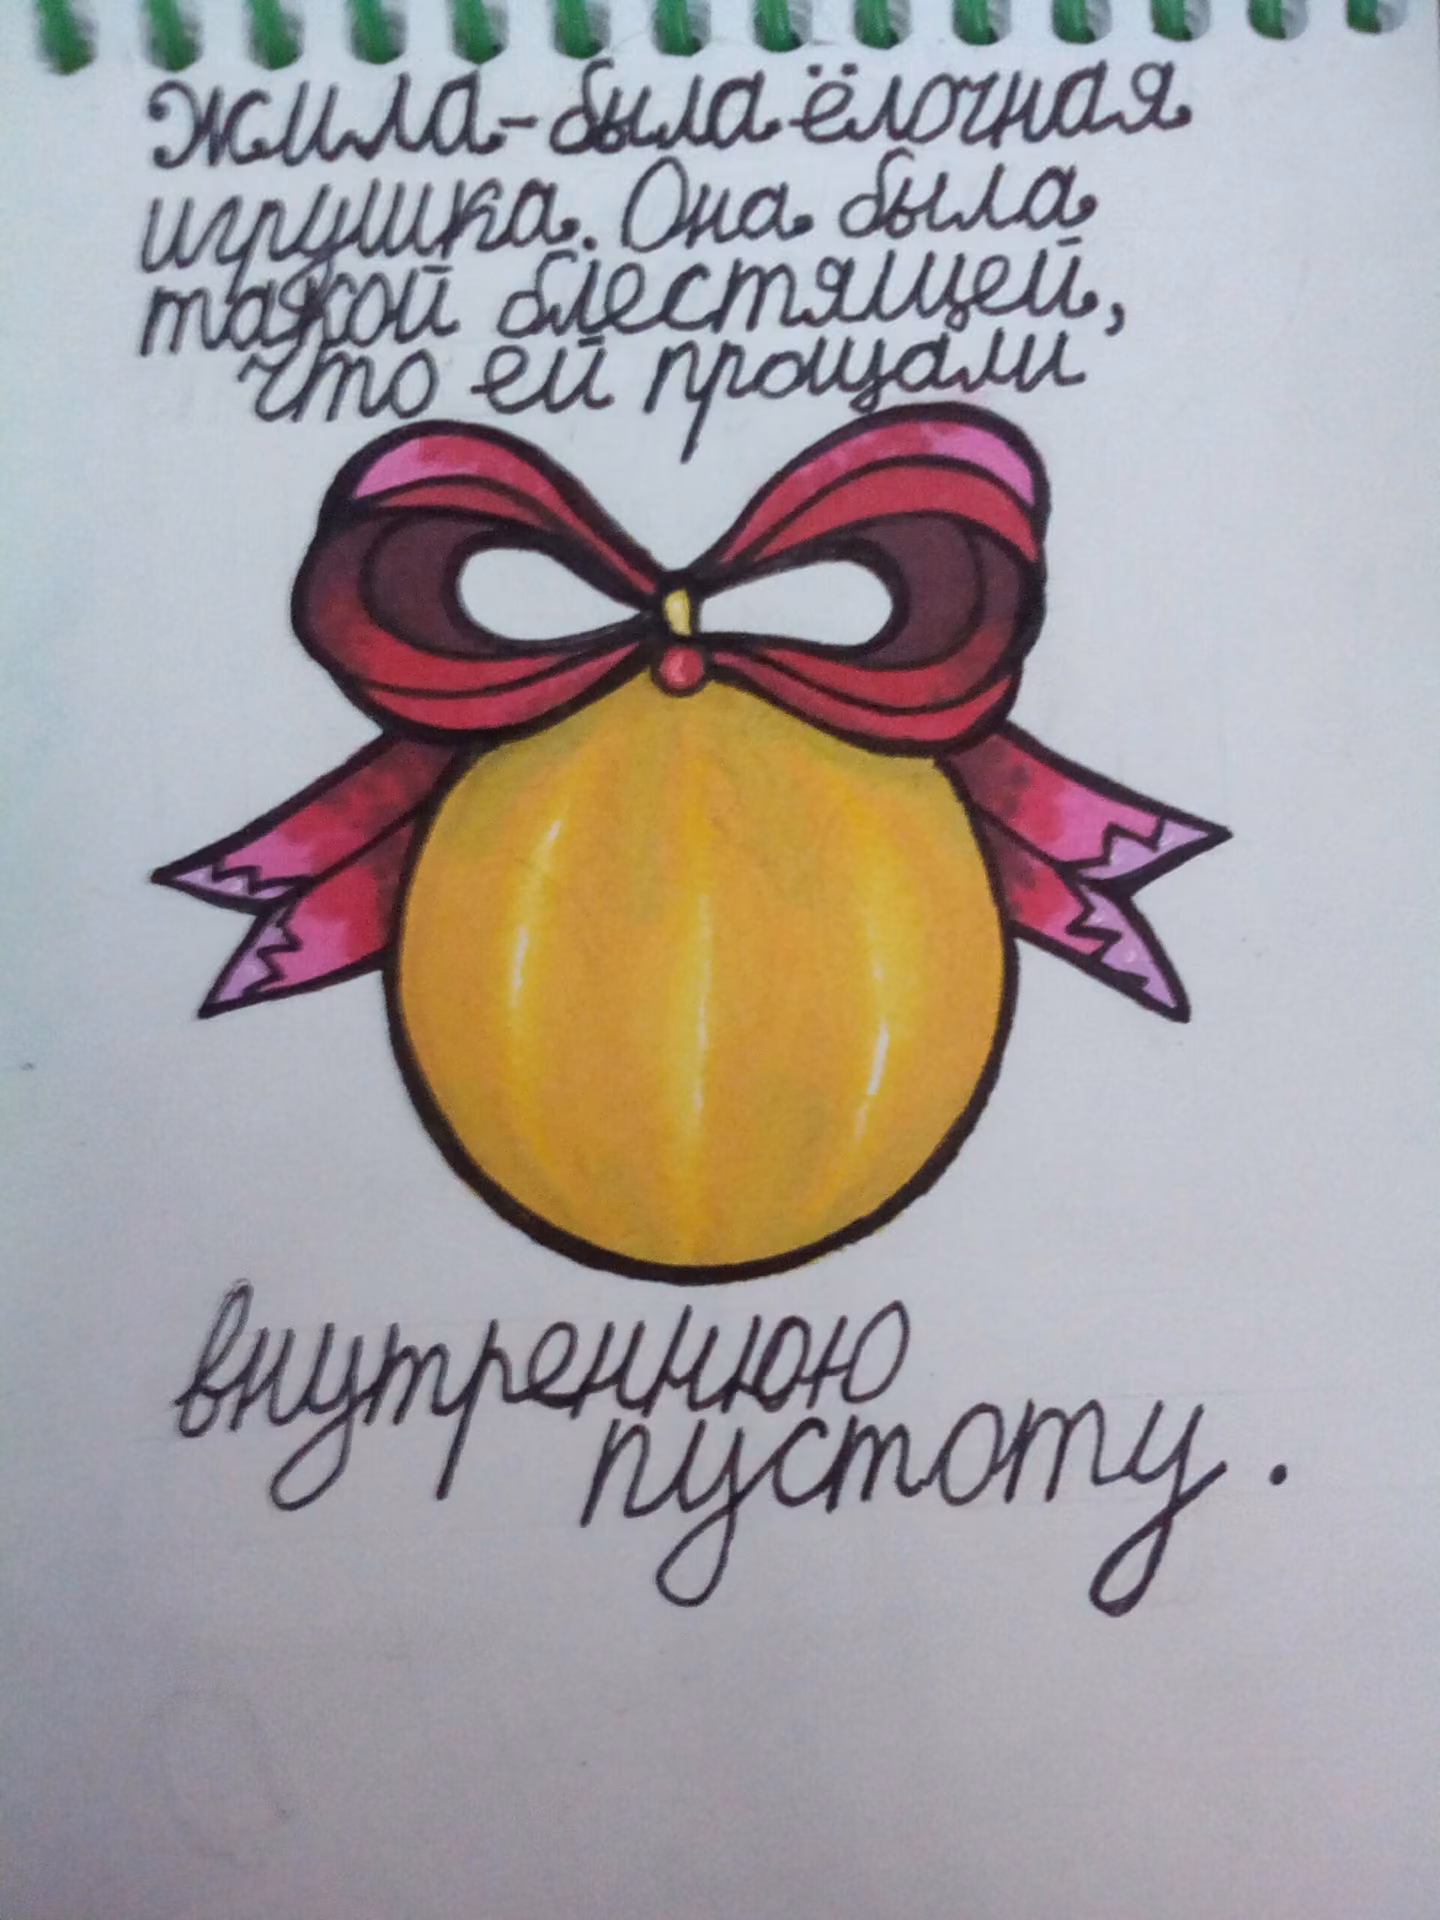 Жила-была ёлочная
игрушка. Она была
такой блестящей,
что ей прощали
внутреннюю
пустоту.